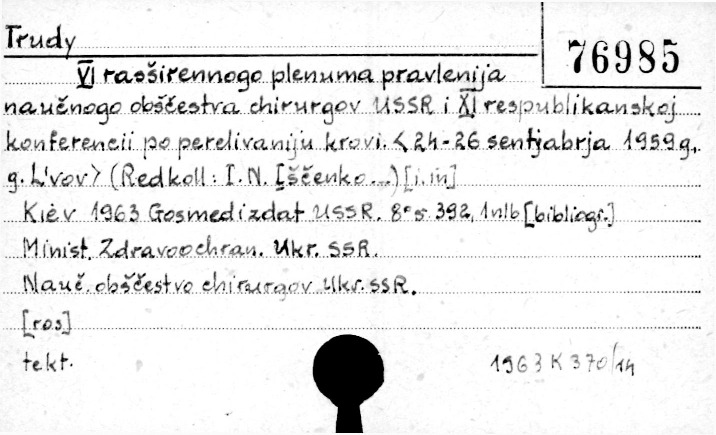 Trudy
76985
VI rasširennogo plenuma pravlenija
naučnogo obščestva chirurgov USSR i XI respublikanskoj
konferencii po perelivaniju krovi. < 24-26 sentjabrja 1959 g.,
g. L'vov > (Redkoll: I. N. Iščenko...) [i in]
Kiev 1963 Gosmedizdat USSR. 8° s 392, 1 nlb [bibliogr.]
Minist. Zdravoochran. Ukr. SSR.
Nauč. obščestvo chirurgov Ukr. SSR.
[ros]
tekt.
1963 K 370/14